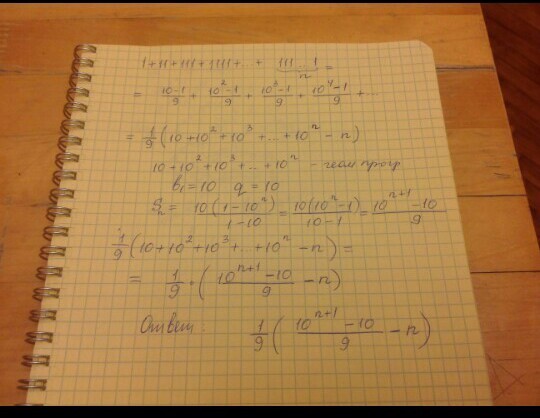 1+11+111+1111+...+ 111...1 =
n
= 10-1/9 + 10²-1/9 + 10³-1/9 + 10⁴-1/9 + ...
= 1/9 (10+10²+10³+...+10ⁿ - n)
10+10²+10³+...+10ⁿ - геом прогр
b₁=10 q=10
Sₙ = 10(1-10ⁿ)/1-10 = 10(10ⁿ-1)/10-1 = 10ⁿ⁺¹-10/9
1/9 (10+10²+10³+...+10ⁿ - n) =
= 1/9 · (10ⁿ⁺¹-10/9 - n)
Ответ: 1/9 (10ⁿ⁺¹-10/9 - n)